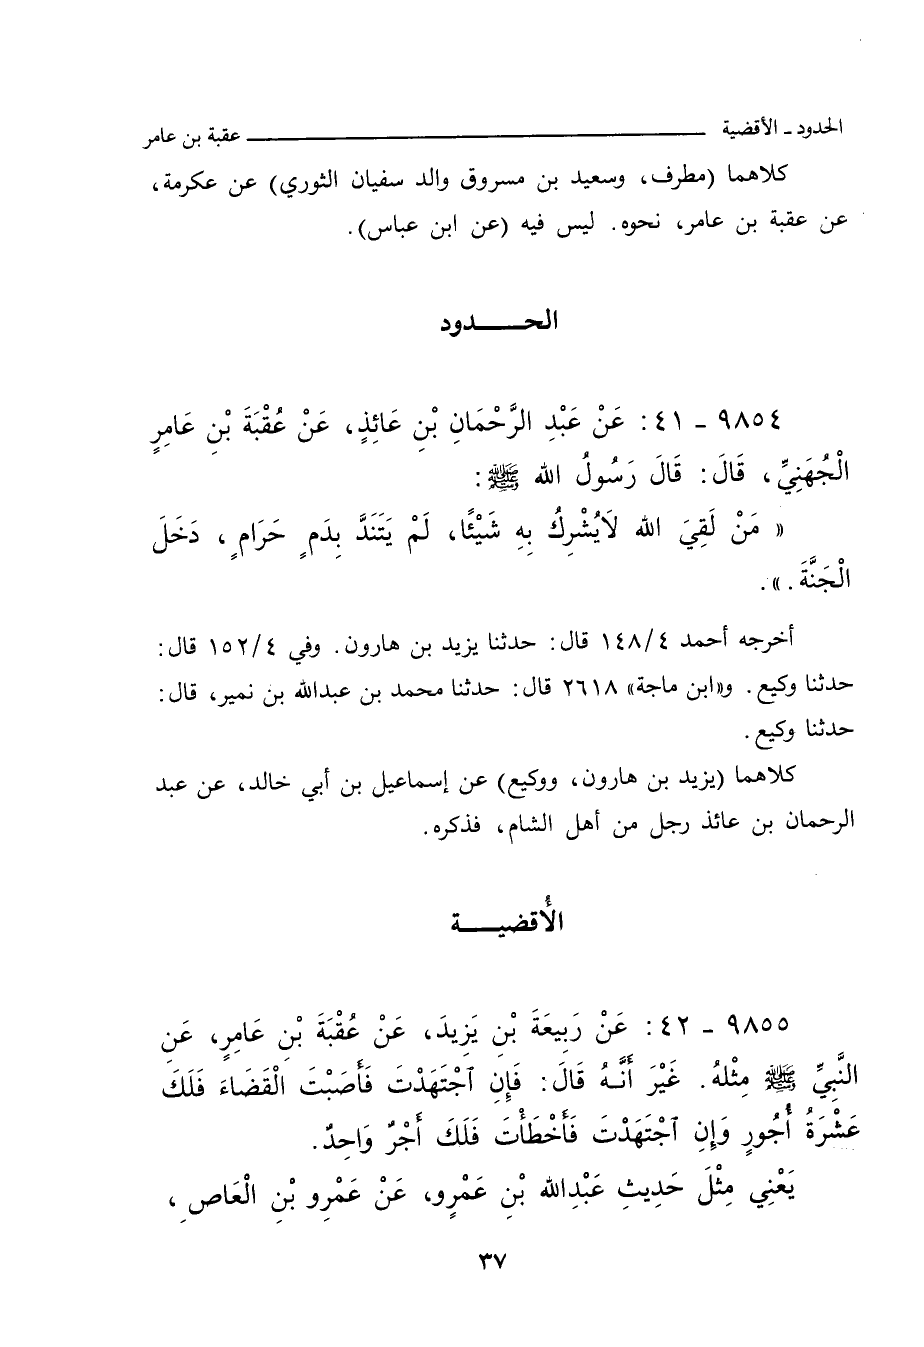 الحدود - الأقضية ــــــــــ عقبة بن عامر
كلاهما (مطرف، وسعيد بن مسروق والد سفيان الثوري) عن عكرمة،
عن عقبة بن عامر، نحوه. ليس فيه (عن ابن عباس).
الحـــــدود
٩٨٥٤ - ٤١: عَنْ عَبْدِ الرَّحْمَانِ بْنِ عَائِذٍ، عَنْ عُقْبَةَ بْنِ عَامِرٍ
الْجُهَنِيِّ، قَالَ: قَالَ رَسُولُ الله ﷺ:
« مَنْ لَقِيَ الله لَايُشْرِكُ بِهِ شَيْئًا، لَمْ يَتَنَدَّ بِدَمٍ حَرَامٍ، دَخَلَ
الْجَنَّةَ.».
أخرجه أحمد ١٤٨/٤ قال: حدثنا يزيد بن هارون. وفي ١٥٢/٤ قال:
حدثنا وكيع. و«ابن ماجة» ٢٦١٨ قال: حدثنا محمد بن عبدالله بن نمير، قال:
حدثنا وكيع.
كلاهما (يزيد بن هارون، ووكيع) عن إسماعيل بن أبي خالد، عن عبد
الرحمان بن عائذ رجل من أهل الشام، فذكره.
الأُقضيـــة
٩٨٥٥ - ٤٢: عَنْ رَبِيعَةَ بْنِ يَزِيدَ، عَنْ عُقْبَةَ بْنِ عَامِرٍ، عَنِ
النَّبِيِّ ﷺ مِثْلهُ. غَيْرَ أَنَّهُ قَالَ: فَإِنِ ٱجْتَهَدْتَ فَأَصَبْتَ الْقَضَاءَ فَلَكَ
عَشْرَةُ أُجُورٍ وَإِنِ ٱجْتَهَدْتَ فَأَخْطَأْتَ فَلَكَ أَجْرٌ وَاحِدٌ.
يَعْنِي مِثْلَ حَدِيثِ عَبْدِالله بْنِ عَمْرٍو، عَنْ عَمْرِو بْنِ الْعَاصِ،
٣٧